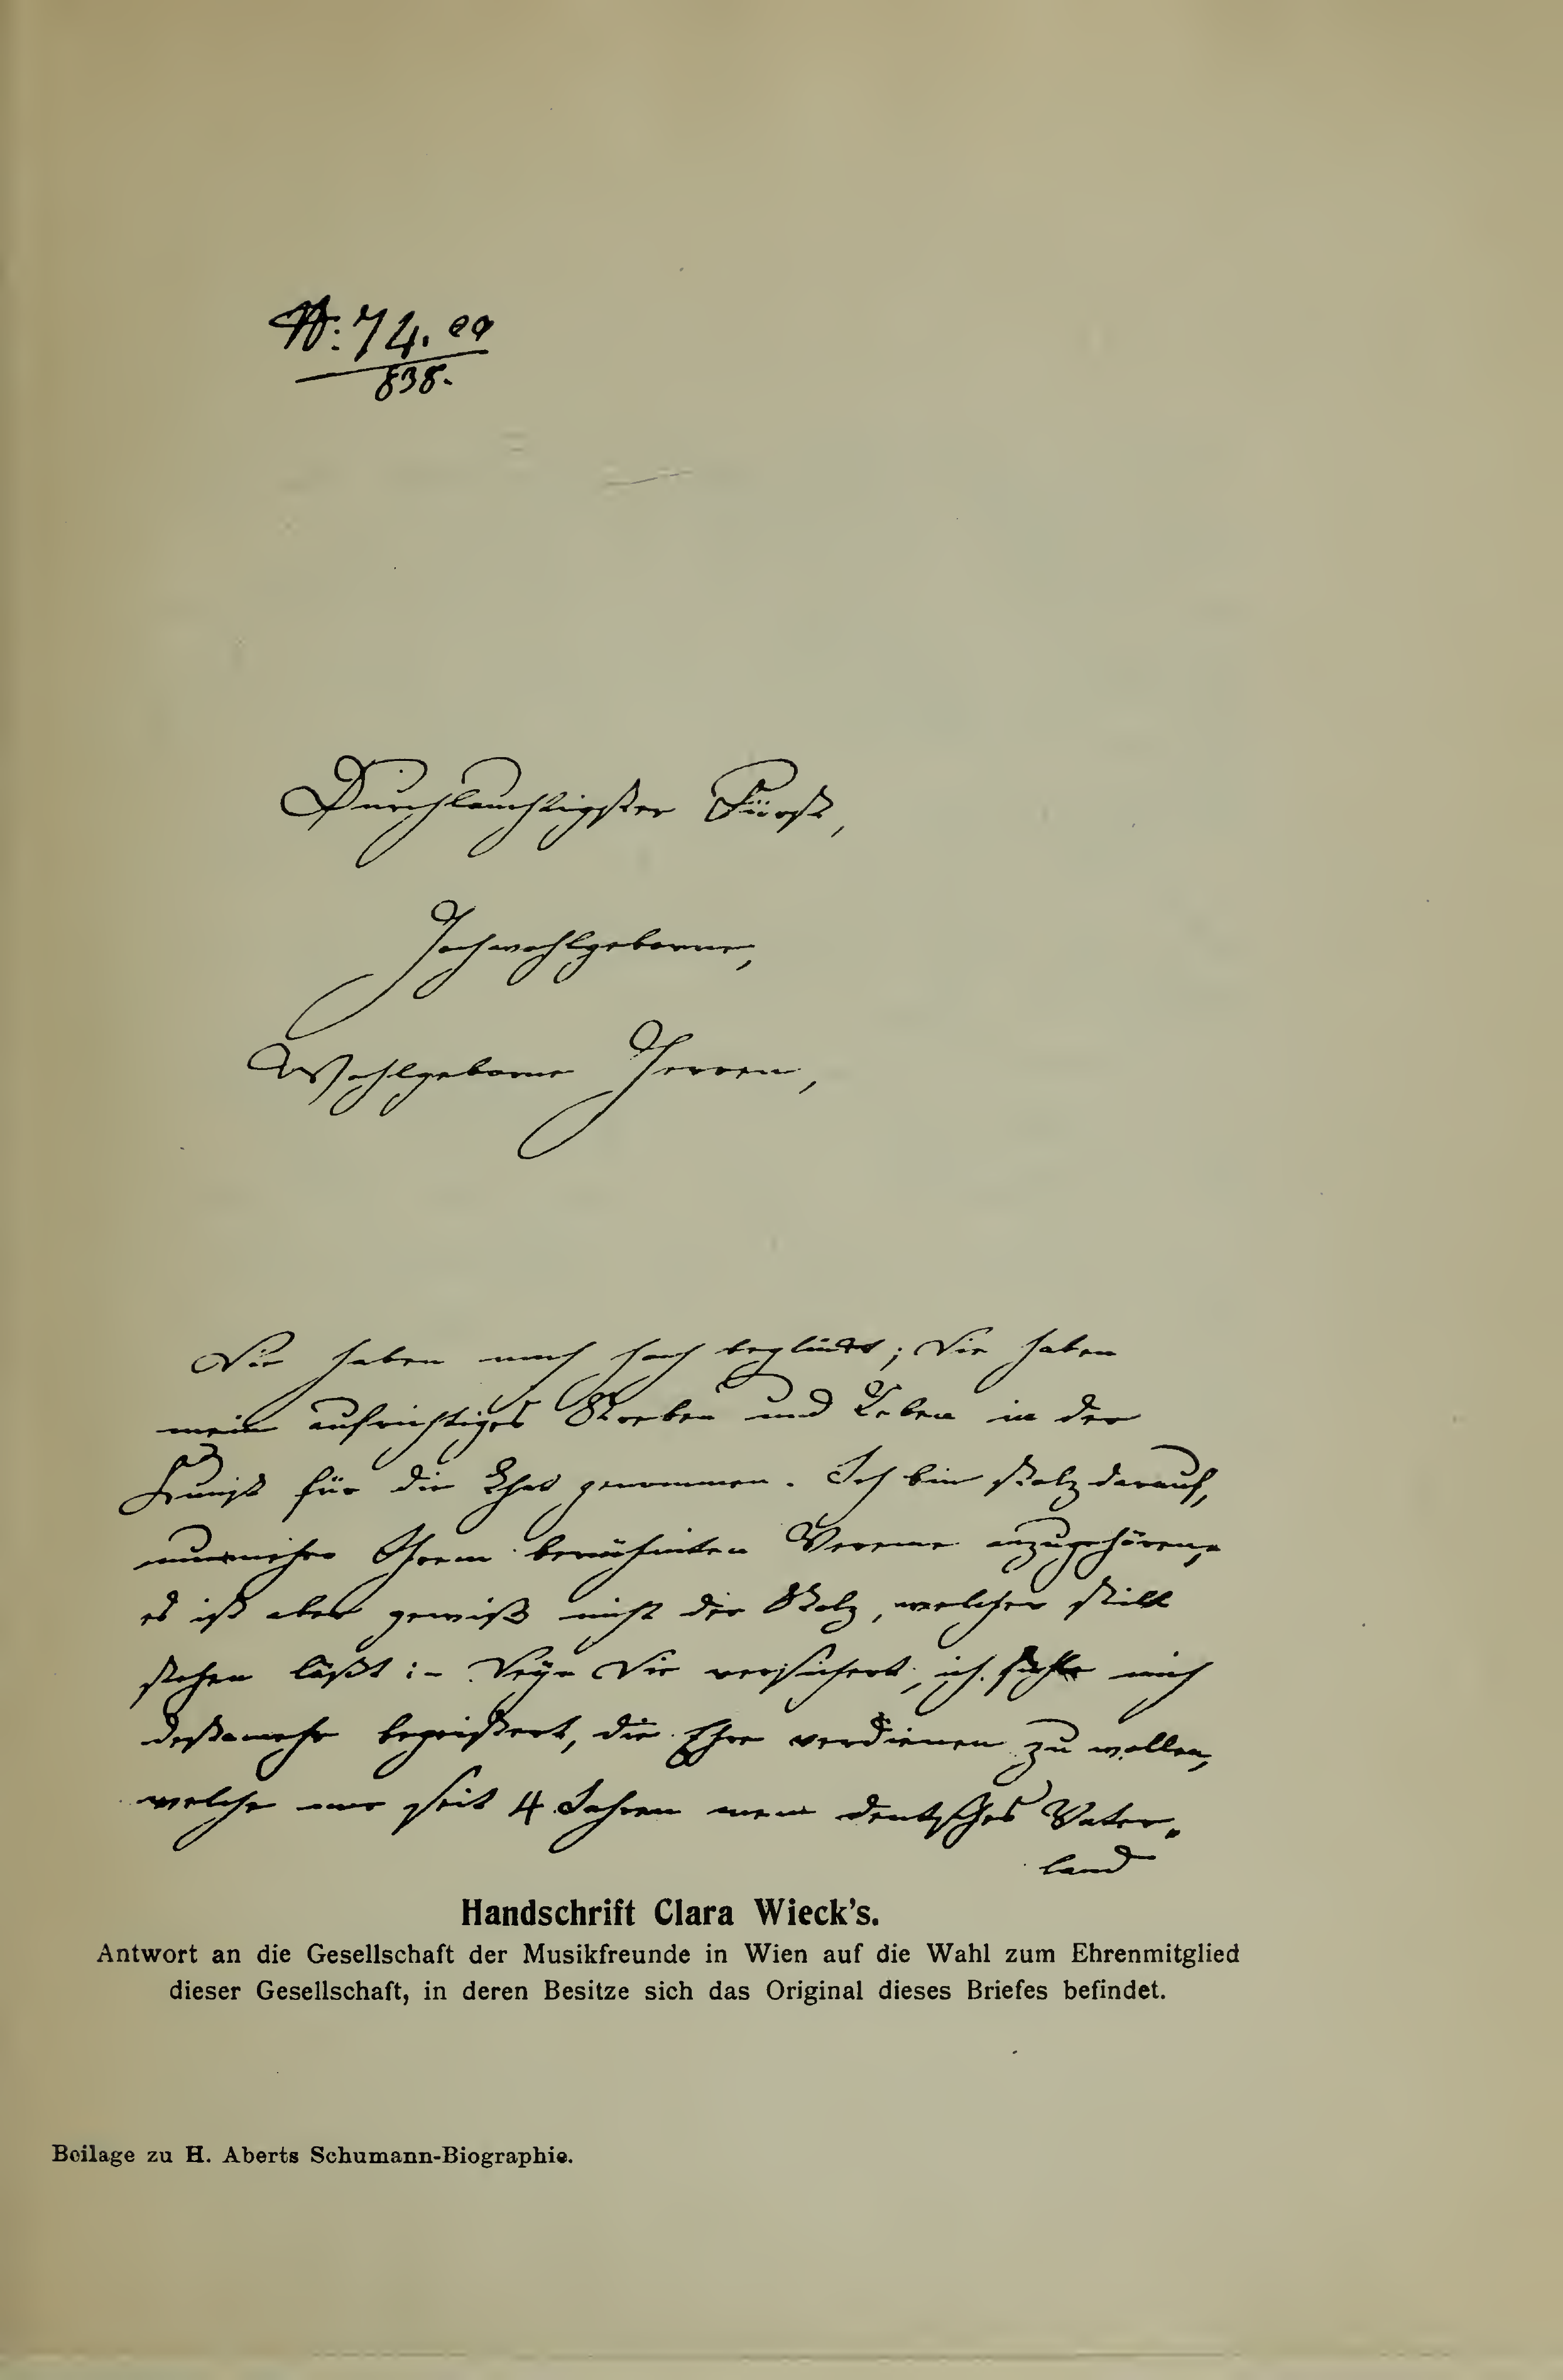 N: 74. ea
838.
Durchlauchtigster Fürst,
Hochwohlgeborne,
Wohlgeborne Herren,
Sie haben mich hoch beglückt; Sie haben
mein aufrichtiges Streben und Leben in der
Kunst für die That genommen. Ich bin stolz darauf,
nunmehro Ihrem berühmten Vereine anzugehören,
es ist aber gewiß nicht der Stolz, welcher still
stehen läßt :- Seyn Sie versichert, ich fühle mich
destomehr begeistert, die Ehre verdienen zu wollen,
welche mir seit 4 Jahren mein deutsches Vater„
land
Handschrift Clara Wieck's.
Antwort an die Gesellschaft der Musikfreunde in Wien auf die Wahl zum Ehrenmitglied
dieser Gesellschaft, in deren Besitze sich das Original dieses Briefes befindet.
Beilage zu H. Aberts Schumann-Biographie.